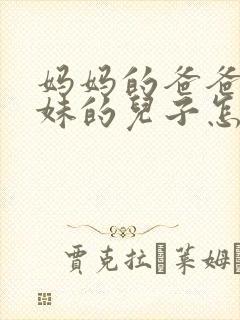 妈妈的爸爸
妹的兒子怎
賈克拉 莱姆